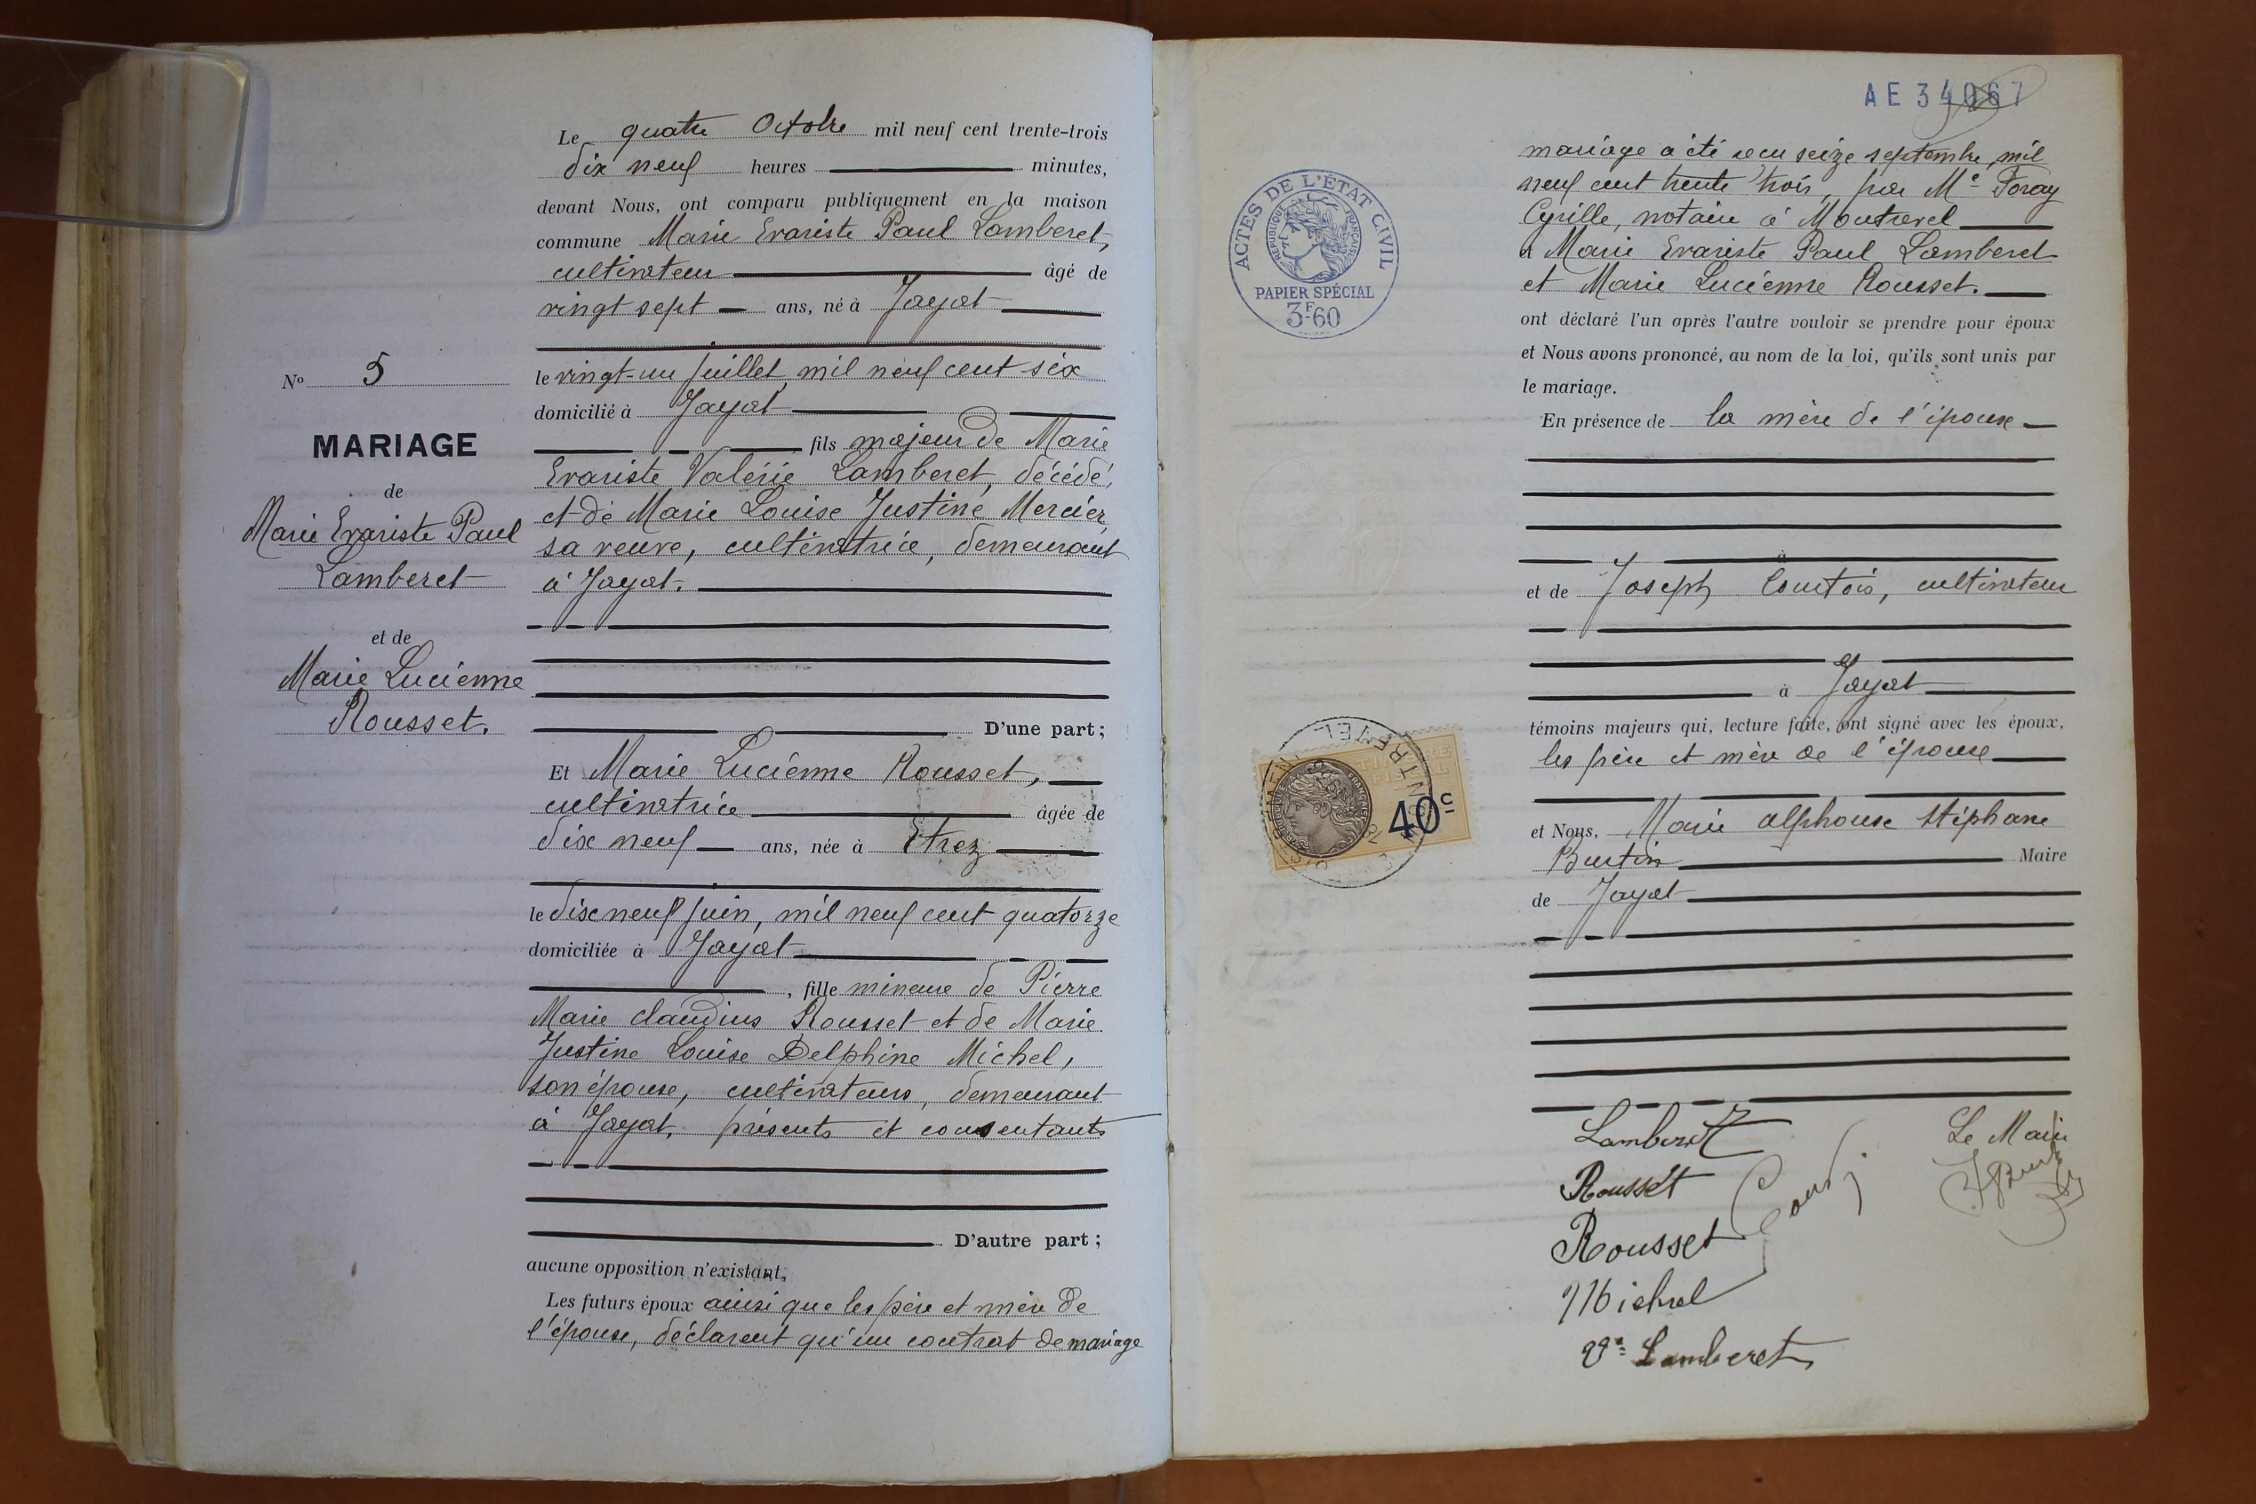 Le quatre Octobre mil neuf cent trente-trois
dix neuf heures minutes,
devant Nous, ont comparu publiquement en la maison
commune Marie Evariste Paul Lamberet,
cultivateur âgé de
vingt sept ans, né à Jayat
le vingt-un juillet, mil neuf cent six
domicilié à Jayat
fils majeur de Marie
Evariste Valérie Lamberet, décédé,
et de Marie Louise Justine Mercier,
sa veuve, cultivatrice, demeurant
à Jayat.
D'une part;
Et Marie Lucienne Rousset,
cultivatrice âgée de
dix neuf ans, née à Etrez
le dix neuf juin, mil neuf cent quatorze
domiciliée à Jayat
, fille mineure de Pierre
Marie Claudius Rousset et de Marie
Justine Louise Delphine Michel,
son épouse, cultivateurs, demeurant
à Jayat, présents et consentants
D'autre part;
aucune opposition n'existant,
Les futurs époux ainsi que les père et mère de
l'épouse, déclarent qu'un contrat de mariage
No 5
MARIAGE
de
Marie Evariste Paul
Lamberet
et de
Marie Lucienne
Rousset.
AE 34067
mariage a été reçu seize septembre mil
neuf cent trente trois, par Me Foray
Cyrille, notaire à Montrevel
et Marie Evariste Paul Lamberet
et Marie Lucienne Rousset.
ont déclaré l'un après l'autre vouloir se prendre pour époux
et Nous avons prononcé, au nom de la loi, qu'ils sont unis par
le mariage.
En présence de la mère de l'épouse
et de Joseph Courtois, cultivateur
à Jayat
témoins majeurs qui, lecture faite, ont signé avec les époux,
les père et mère de l'épouse
et Nous, Marie Alphonse Stéphane
Burtin Maire
de Jayat
Lamberet
Rousset
Rousset
Michel
Ve Lamberet
Le Maire
ACTES DE L'ÉTAT CIVIL
RÉPUBLIQUE FRANÇAISE
PAPIER SPÉCIAL
3F-60
TIMBRE
FISCAL
40c
MONTREVEL